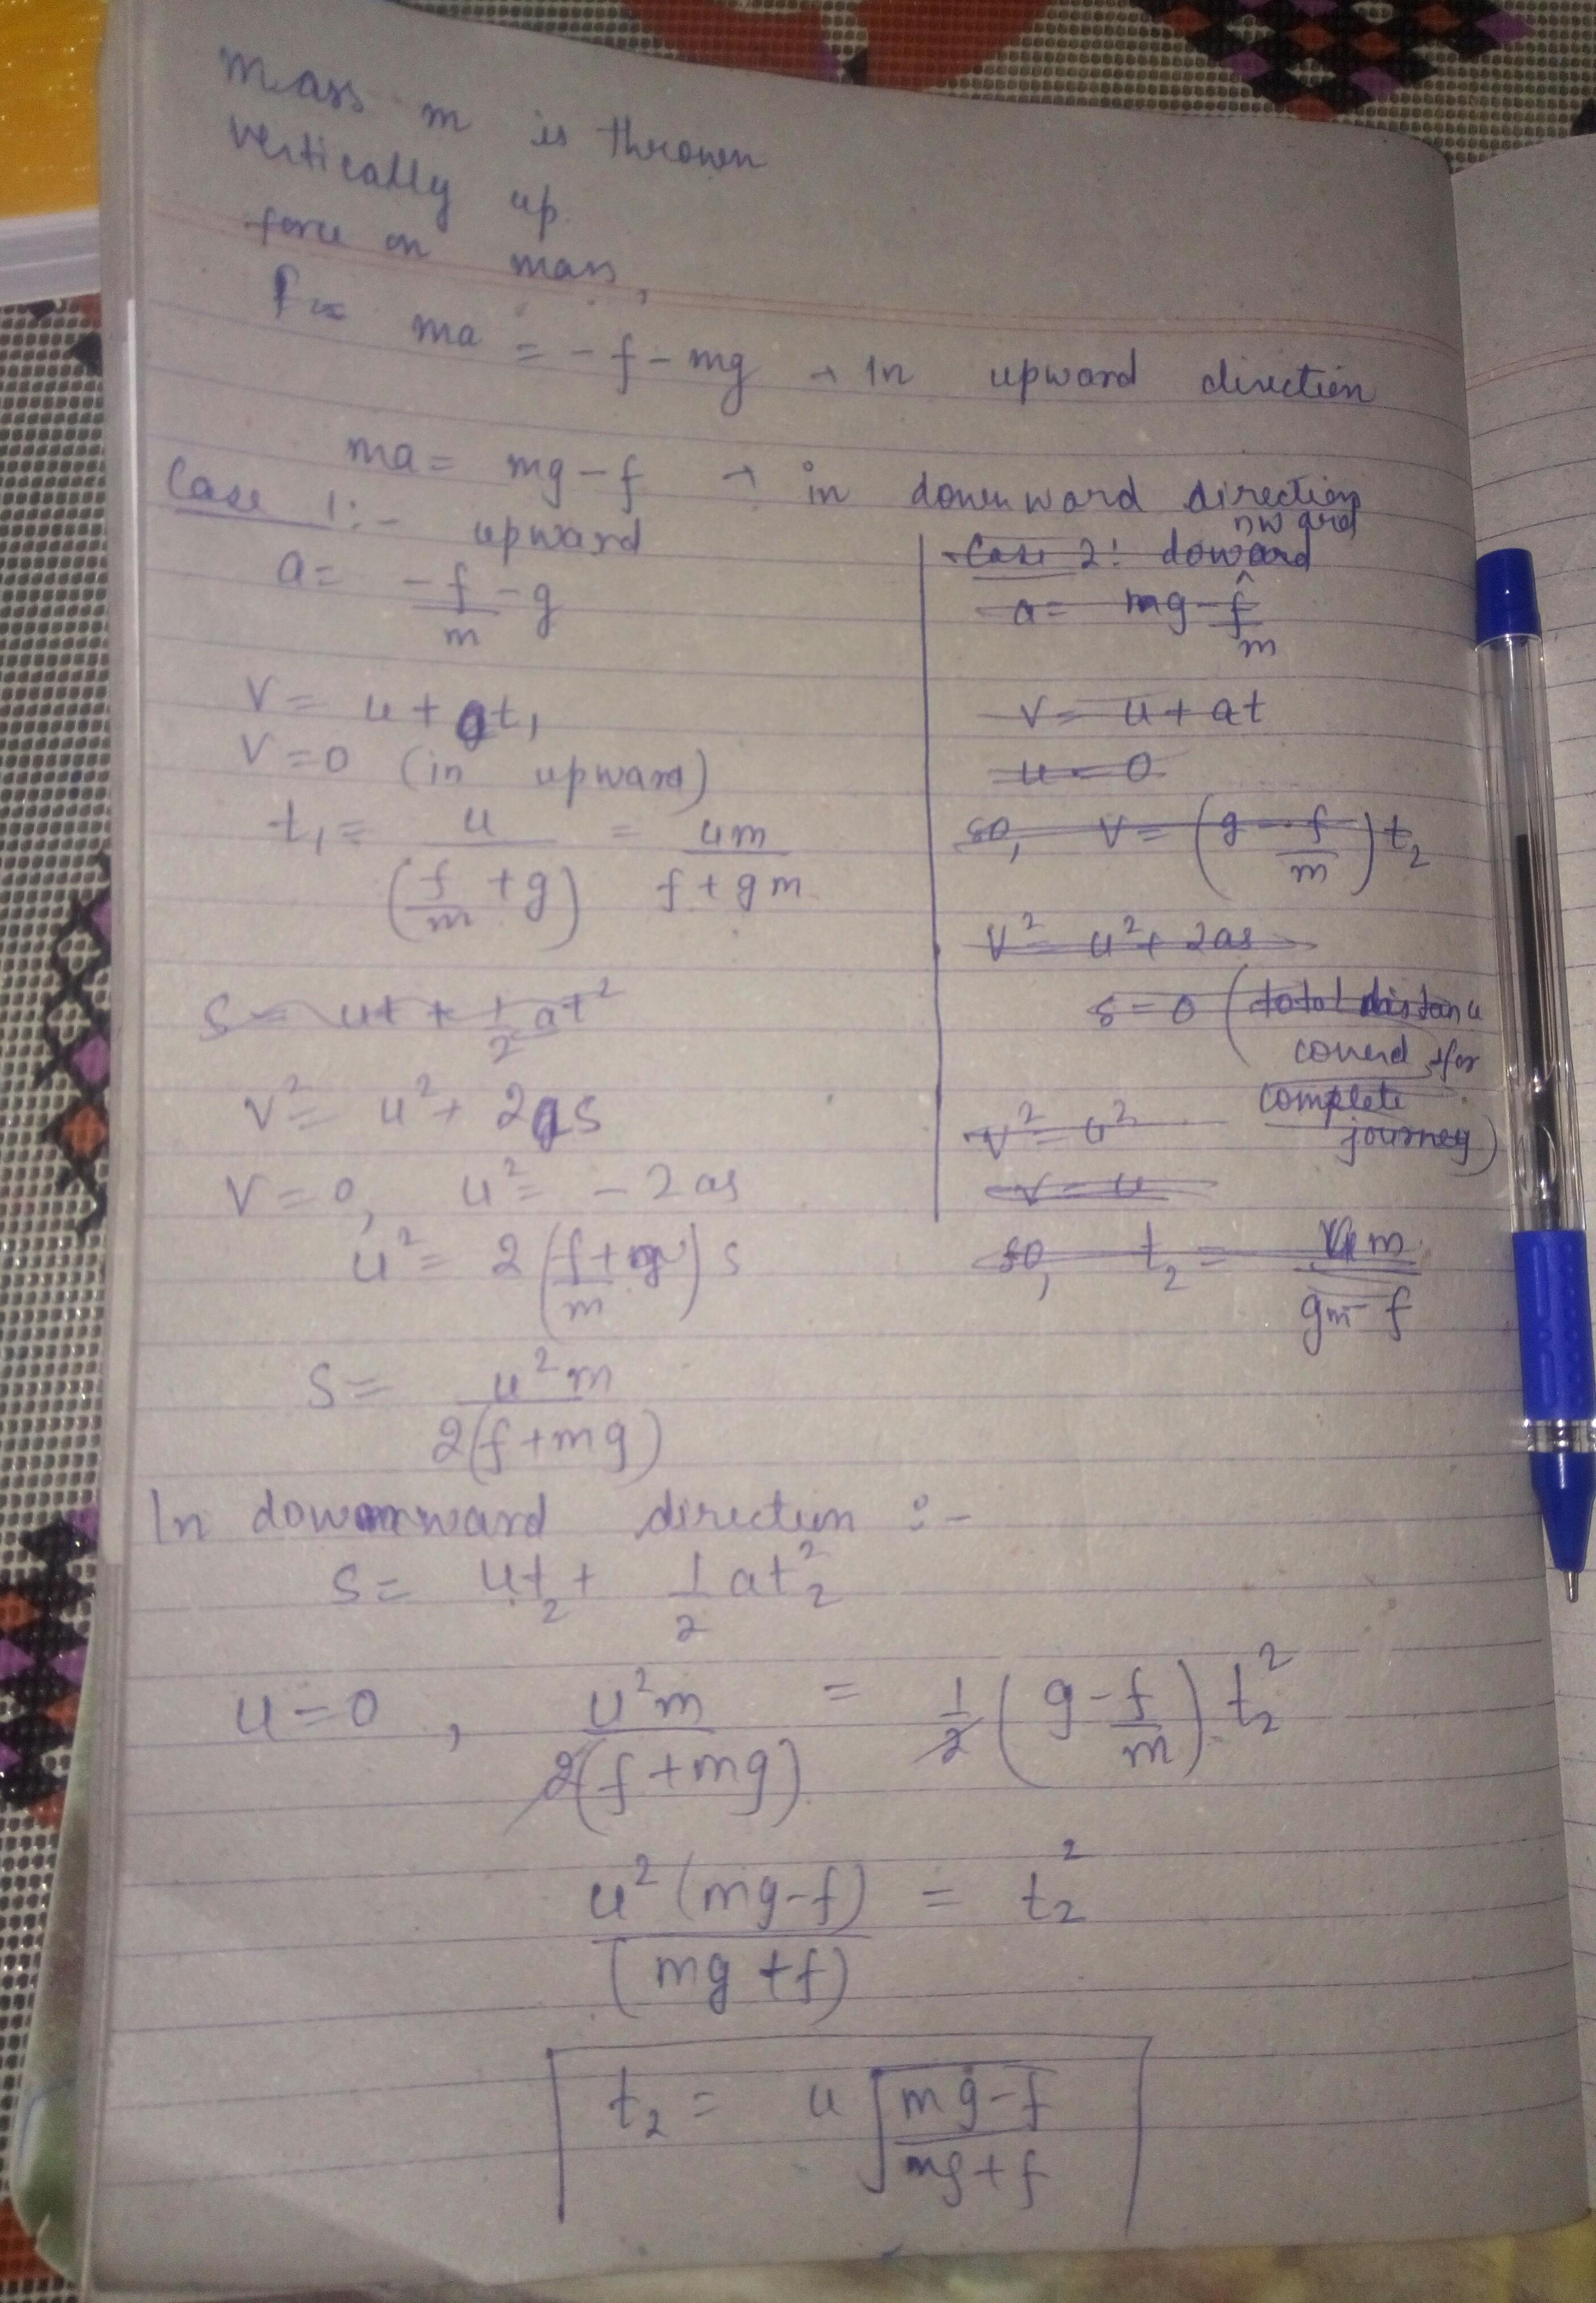 Mass m is thrown
vertically up.
force on mass,
f = ma = -f - mg → in upward direction
ma = mg - f → in downward direction
Case 1:- upward
a = -f/m - g
v = u + at₁
v = 0 (in upward)
t₁ = u/(f/m + g) = um/(f + gm)
s = ut + 1/2 at²
v² = u² + 2as
v = 0, u² = -2as
u² = 2(f/m + g)s
s = u²m/2(f + mg)
Case 2: doward nward
a = mg - f/m
v = u + at
u = 0
so, v = (g - f/m)t₂
v² = u² + 2as
s = 0 (total distance
coverd for
complete
journey)
v² = u²
v = u
so, t₂ = um/(gm - f)
In downward direction :-
s = ut₂ + 1/2 at₂²
u = 0, u²m/2(f + mg) = 1/2 (g - f/m) t₂²
u²(mg - f)/(mg + f) = t₂²
t₂ = u√((mg - f)/(mg + f))